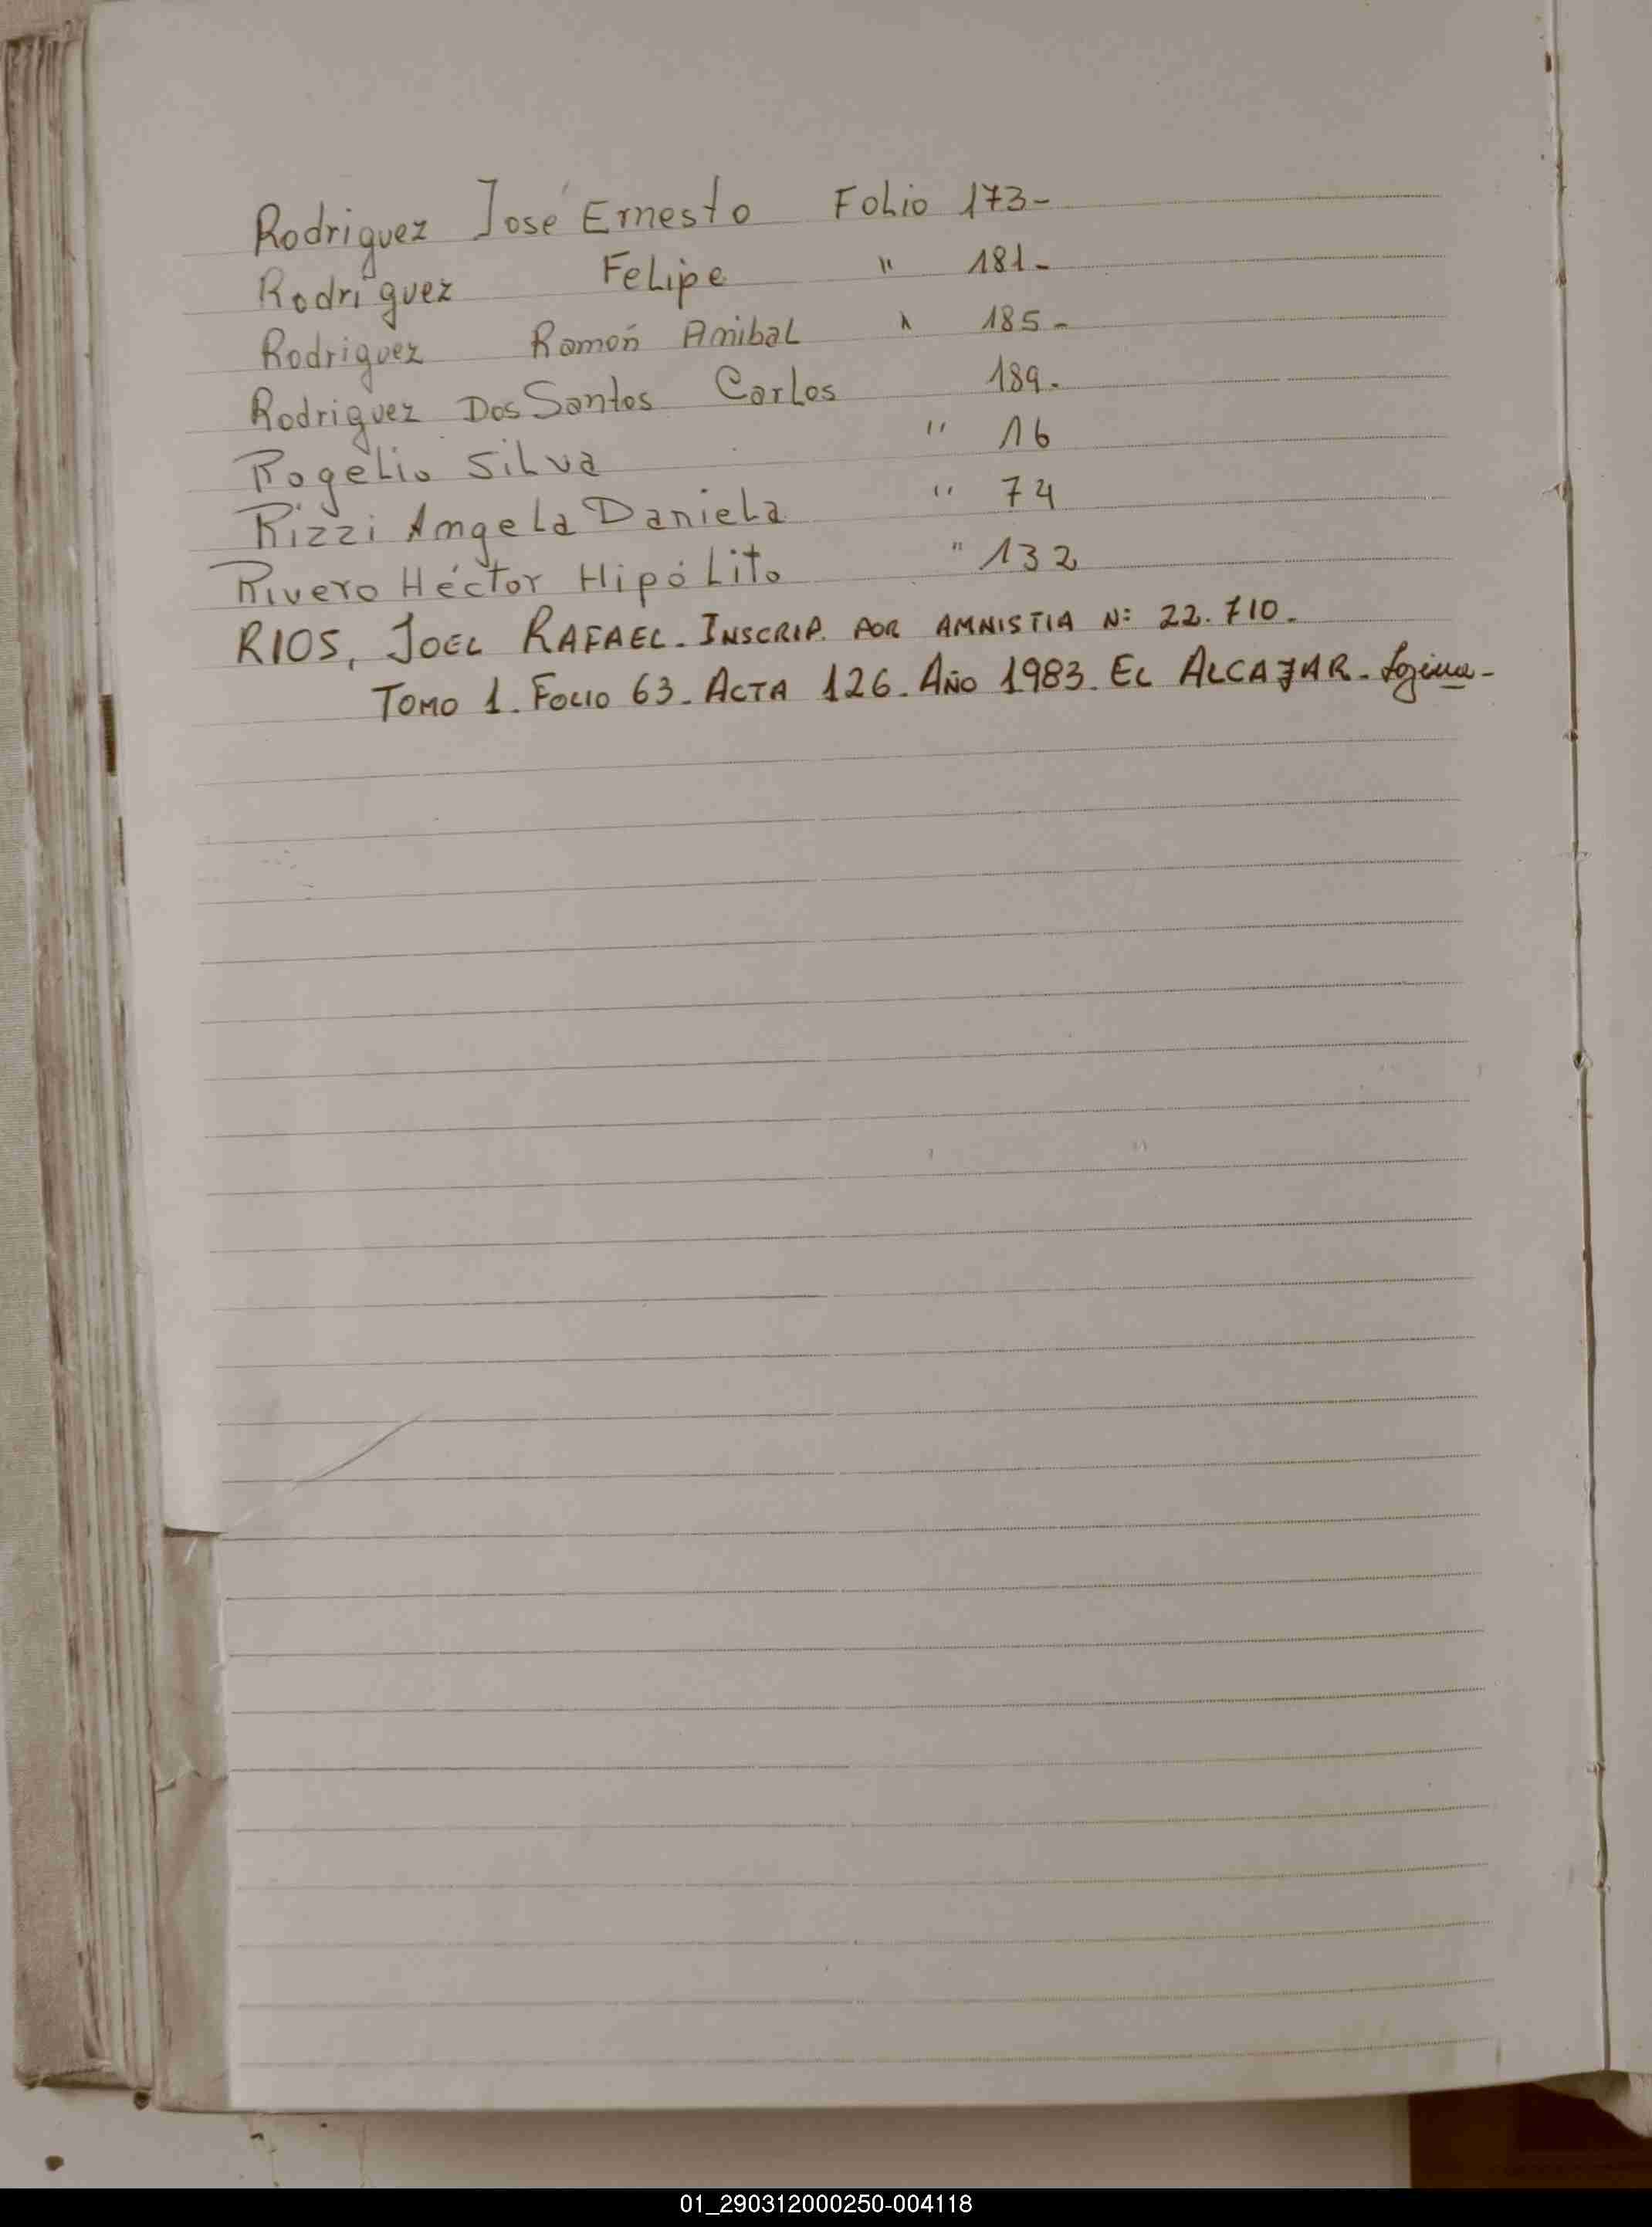 Rodriguez José Ernesto Folio 173-
Rodríguez Felipe " 181-
Rodriguez Ramón Anibal " 185-
Rodriguez Dos Santos Carlos 189.
Rogelio Silva " 16
Rizzi Angela Daniela " 74
Rivero Héctor Hipólito " 132
RIOS, JOEL RAFAEL. INSCRIP. POR AMNISTIA N: 22.710.
TOMO 1. FOLIO 63. ACTA 126. AÑO 1983. EL ALCAZAR.
01_290312000250-004118